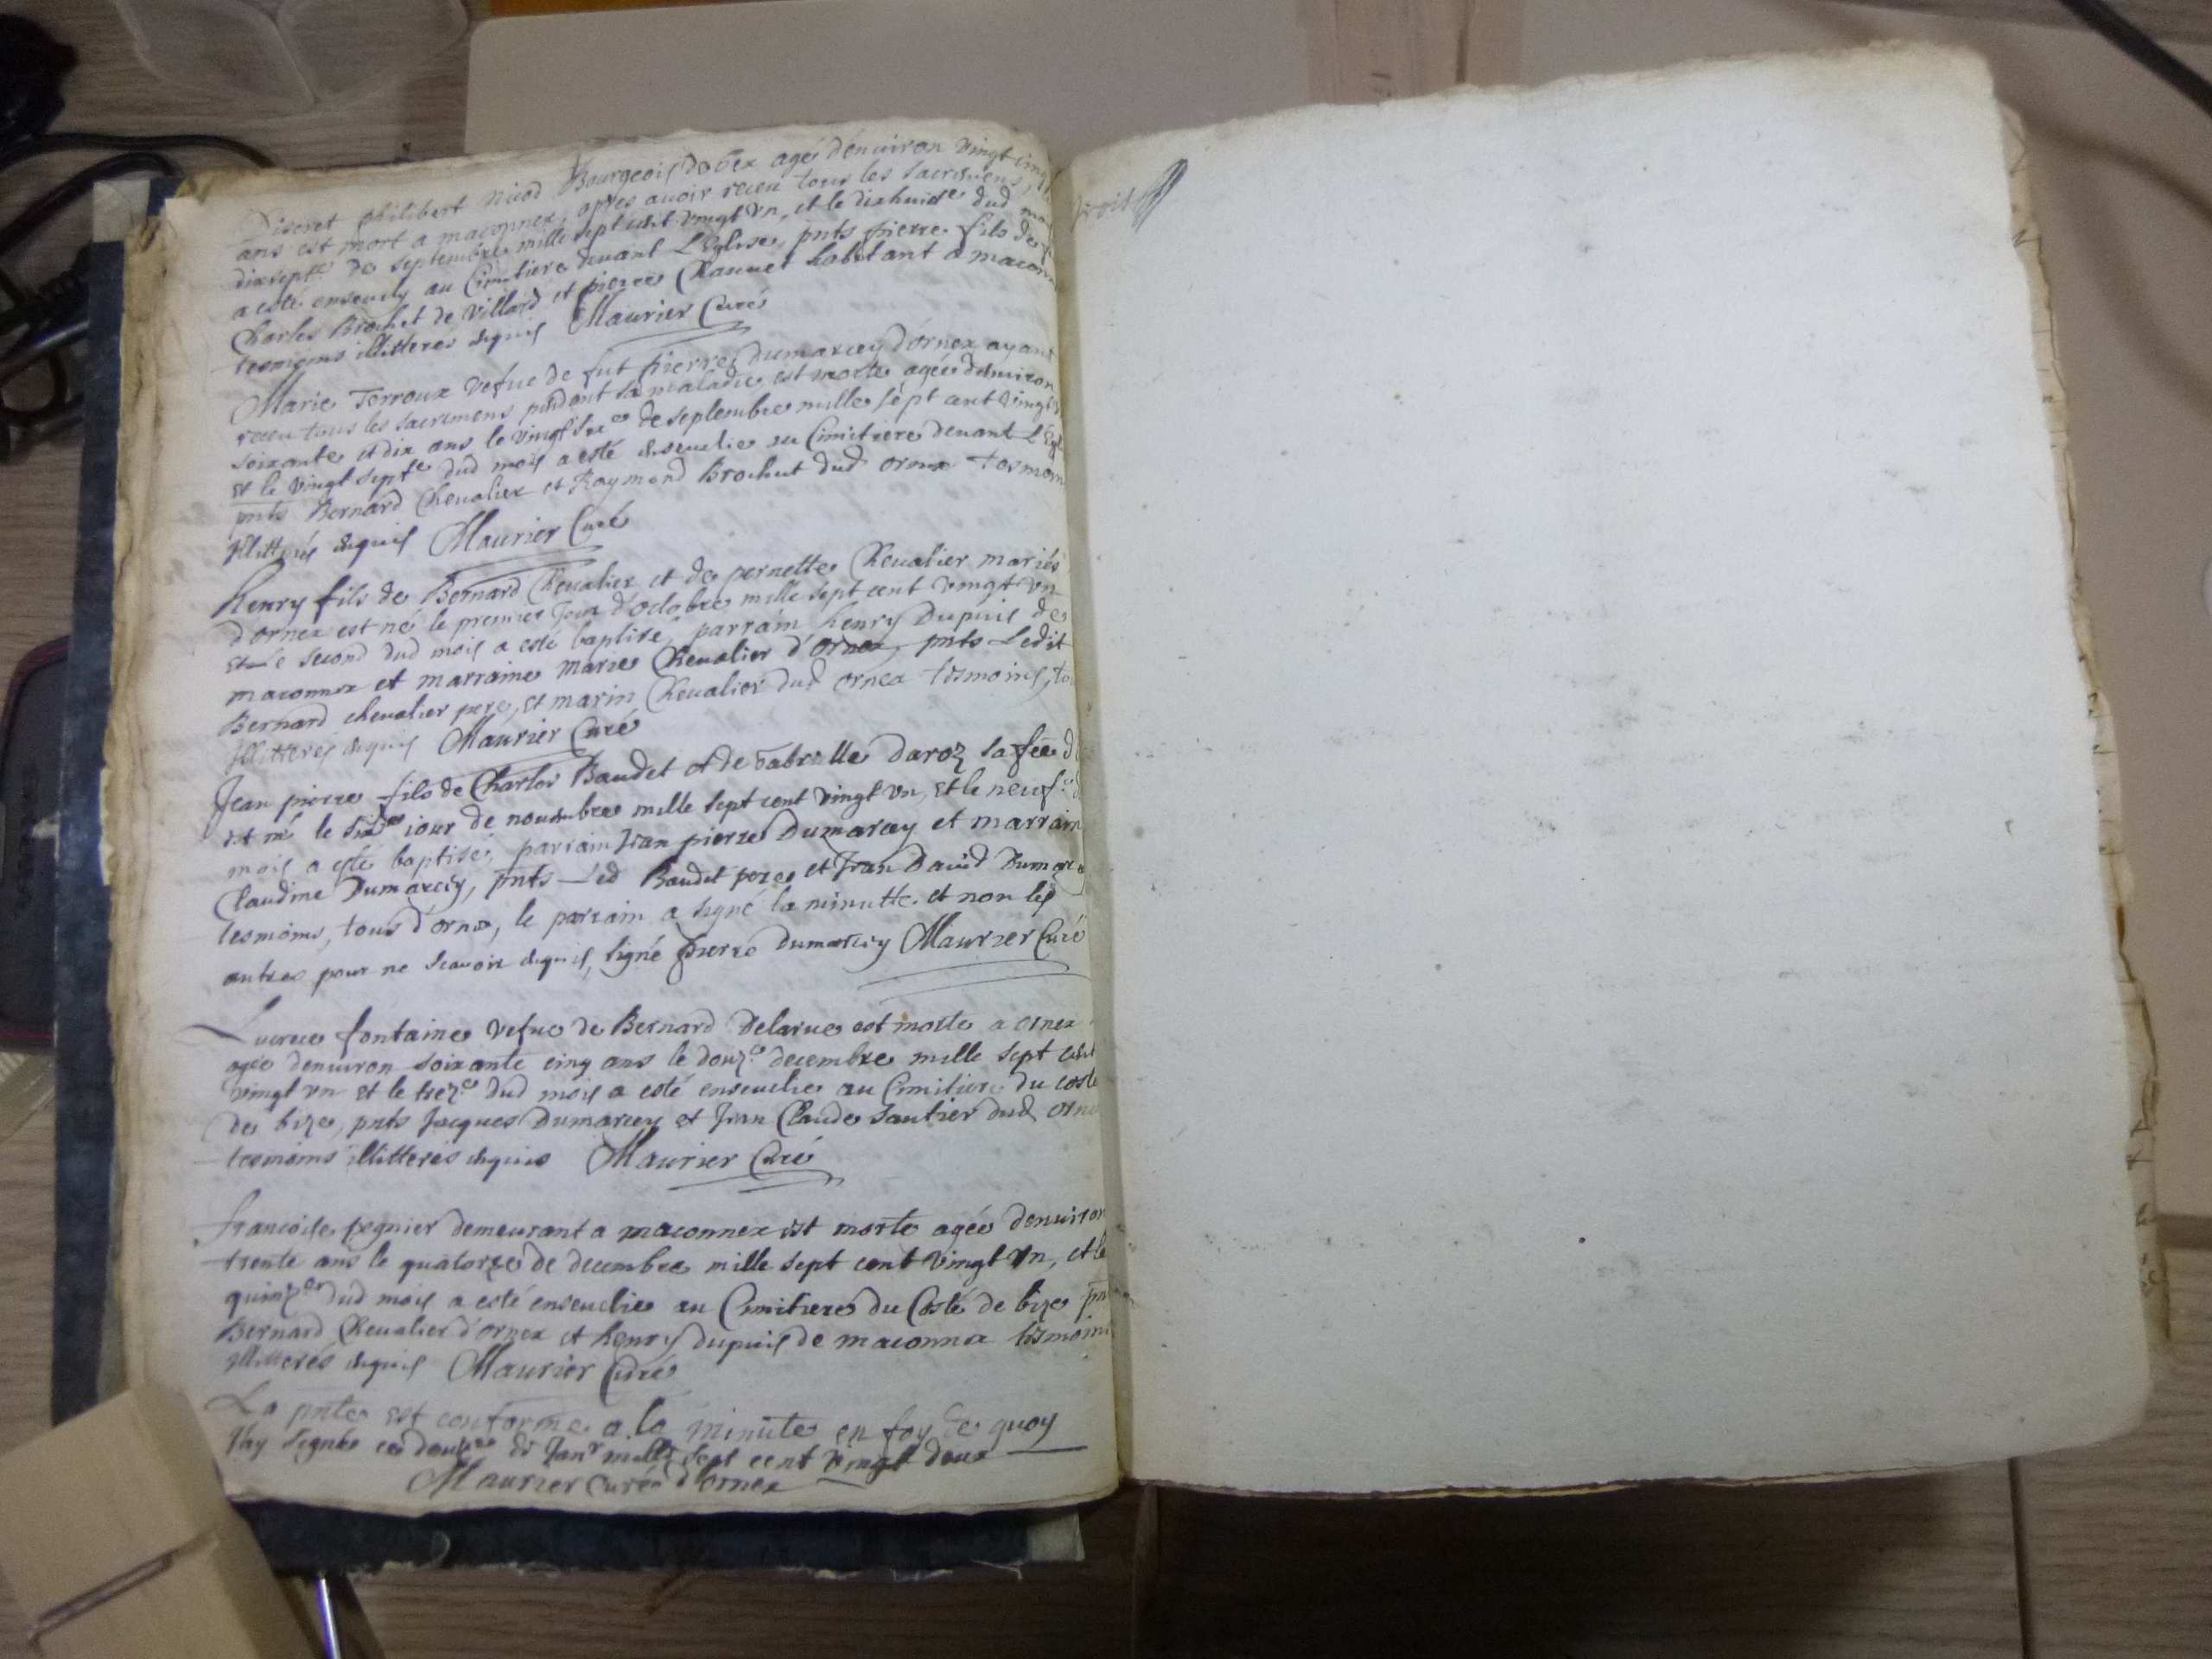 Discret philibert Nicod Bourgeois de Gex agé d'enuiron vingt cinq
ans est mort a maconnex, apres auoir receu tous les sacremens, le
dixsept.e de septembre mille sept cent vingt vn, et le dixhuit.e dud mois
a esté enseuely au Cimitiere deuant L'Eglise, pnts pierre fils de
Charles Brochet de Villard et pierre Chauuet habitant a maconnex
tesmoins illitteres enquis Maurier Curé
Marie Terroux vefue de fut pierre Dumarcey d'ornex ayant
receu tous les sacremens pendant sa maladie est morte agée d'enuiron
soixante et dix ans le vingt six.e de septembre mille sept cent vingt vn
et le vingt sept.e dud mois a esté enseuelie au Cimitiere deuant L'Egl
pnts Bernard Cheualier et Raymond Brochet dud ornex tesmoins
Illitterés enquis Maurier Curé
Henry fils de Bernard Cheualier et de pernette Cheualier mariés
d'ornex est né le premier Jour d'octobre mille sept cent vingt vn
et Le second dud mois a esté baptisé, parrain henry Dupuis de
maconnex et marraine Marie Cheualier d'Ornex, pnts Ledit
Bernard cheualier pere, et marin Cheualier dud ornex tesmoins, to
Illitterés enquis Maurier Curé
Jean pierre fils de Charles Baudet et de Gabrielle Daroz sa fēe d
est né le six.e iour de nouembre mille sept cent vingt vn, et le neuf.e d
mois a esté baptisé, parrain Jean pierre Dumarcey et marrain
Claudine Dumarcey, pnts Led Baudet pere et Jean Dauid Dumarce
tesmoins, tous d'ornex, le parrain a signé la minutte et non les
autres pour ne scauoir enquis, signé Pierre Dumarcey Maurier Curé
Lucrece fontaine vefue de Bernard Delarue est morte a ornex
agée denuiron soixante cinq ans le douz.e decembre mille sept cent
vingt vn et le trez.e dud mois a esté enseuelie au Cimitiere du costé
de bize, pnts Jacques Dumarcey et Jean Claude Sautier dud orne
tesmoins illitterés enquis Maurier Curé
francoise regnier demeurant a maconnex est morte agée denuiron
trente ans le quatorze de decembre mille sept cent vingt vn, et le
quinz.e dud mois a esté enseuelie au Cimitiere du Costé de bize pn
Bernard Cheualier d'ornex et henry dupuis de maconnex tesmoins
illitterés enquis Maurier Curé
La pnte est conforme a la minute en foy de quoy
J'ay signé ce douze de Janr mille sept cent vingt deux
Maurier curé d'ornex
trois